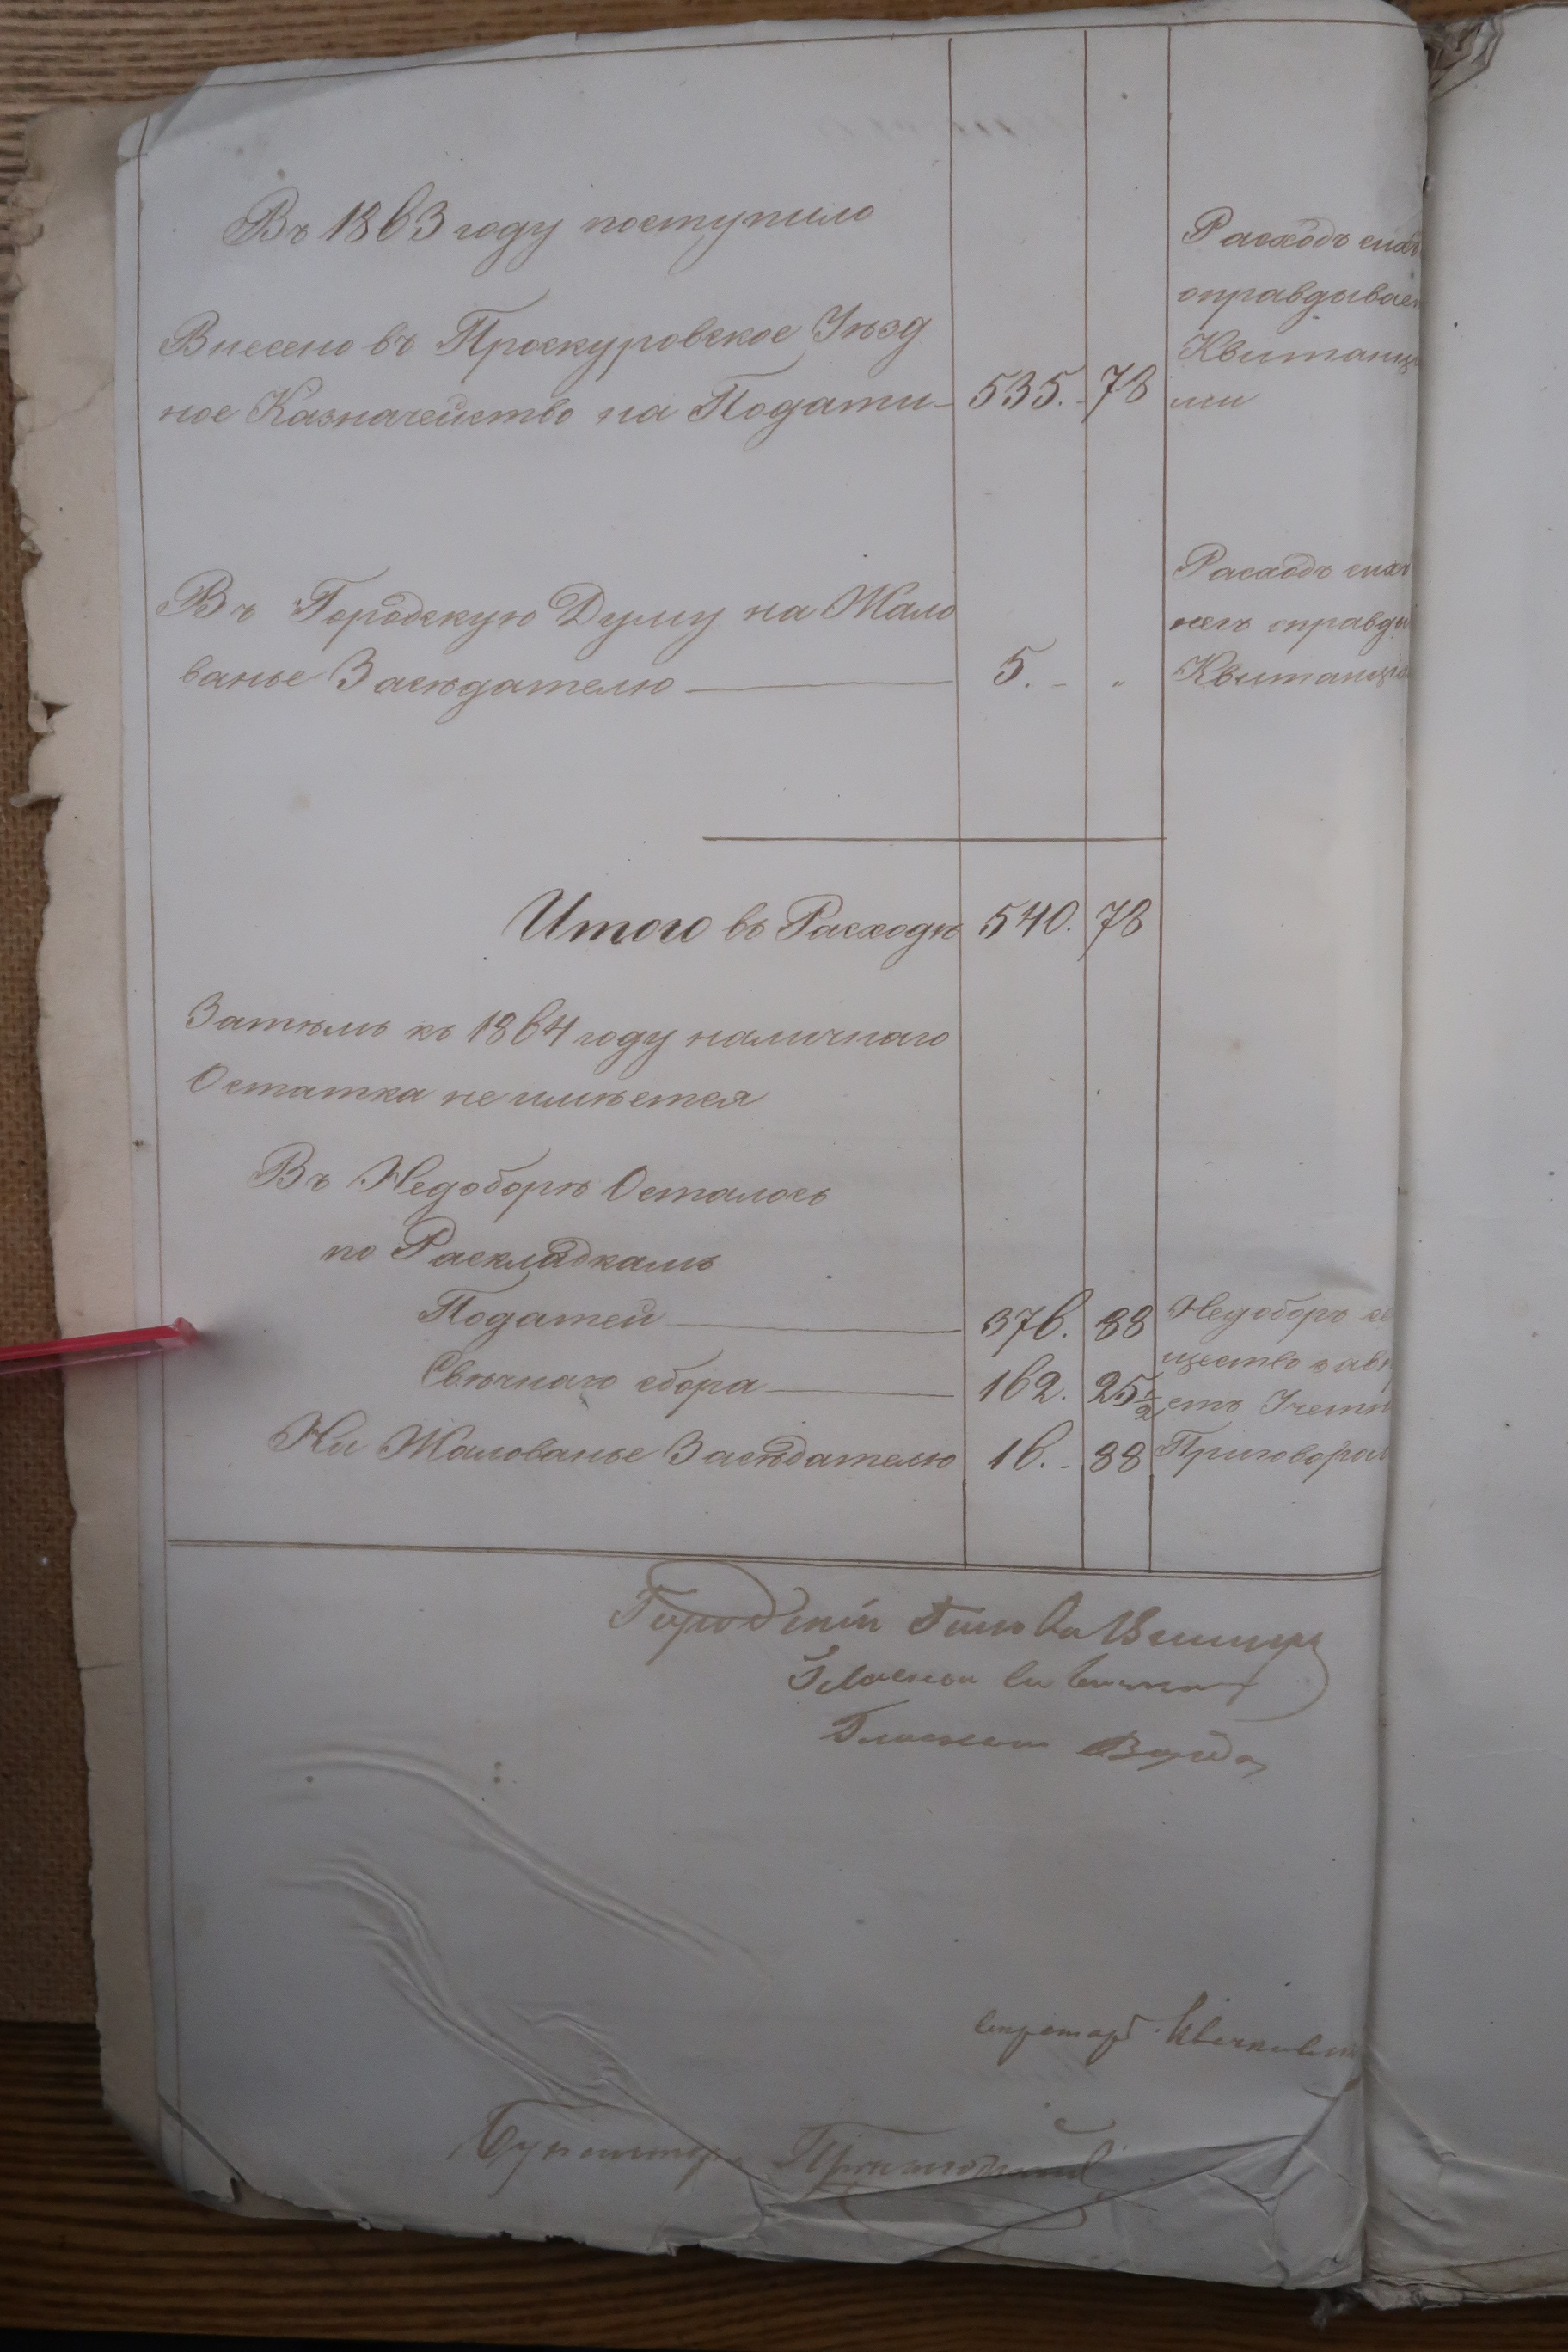 Въ 1863 году поступило
Внесено въ Проскуровское Уѣзд
ное Казначейство на Подати 535. 78
Расходъ
оправдывает
Квитанці
ми
Въ Городскую Думу на Жало
ванье Засѣдателю 5. - "
Расходъ
оправды
Квитанція
Итого въ Расходѣ 540. 78
Затѣмъ къ 1864 году наличнаго
Остатка не имѣется
Въ Недоборѣ Осталось
по Раскладкамъ
Податей 376. 88
Свѣчнаго сбора 162. 25 1/2
На Жалованье Засѣдателю 16. - 88
Недоборъ
щество
етъ Учетн
Приговорам
Городской Голова
Гласный
Гласный Войда
Секретарь
Бухгалтеръ